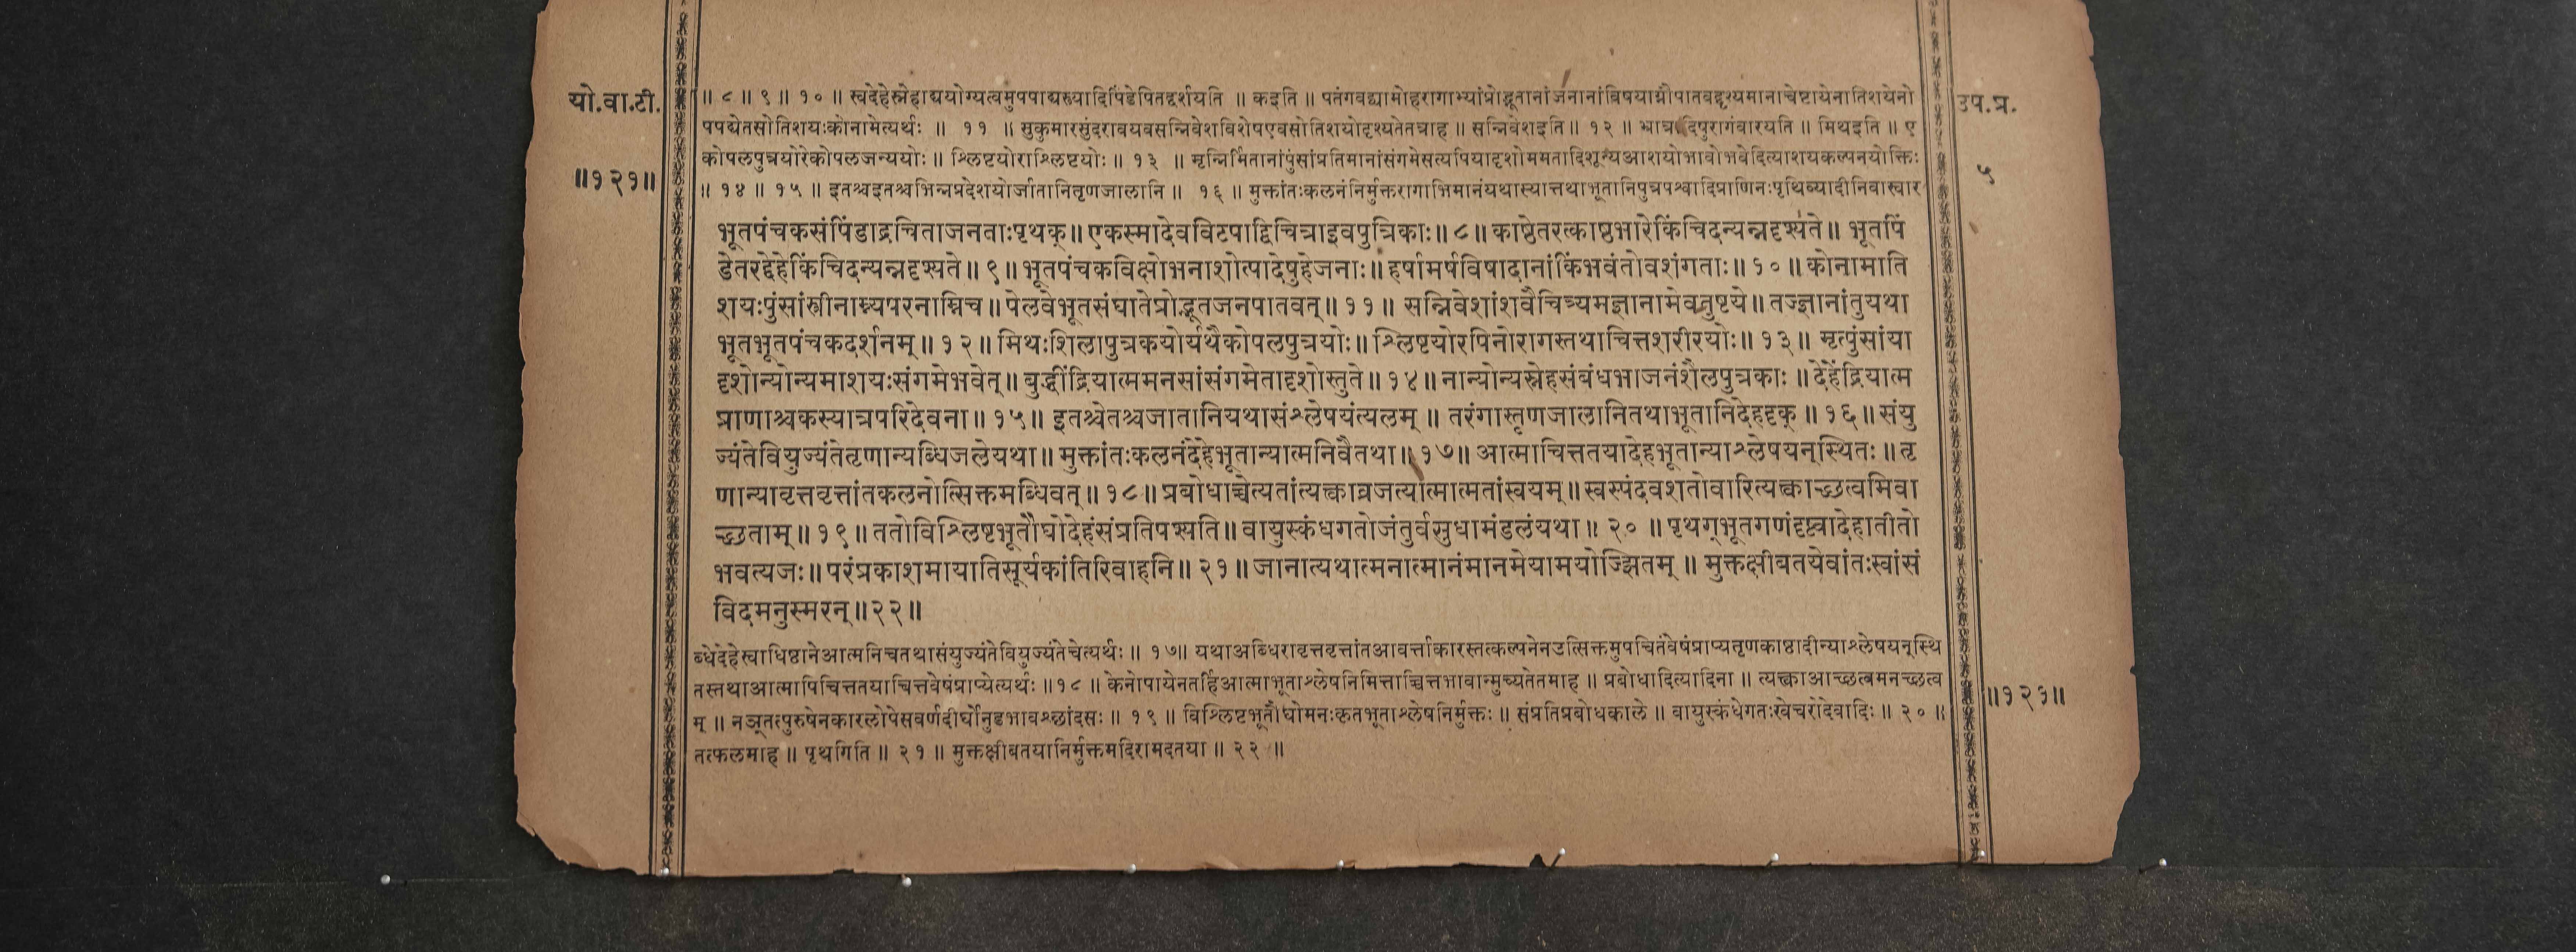 यो.वा.टी.
॥१२१॥
॥ ८ ॥ ९ ॥ १० ॥ स्वदेहेस्नेहाद्ययोग्यत्वमुपपाद्यस्त्र्यादिपिंडेपितद्दर्शयति ॥ कइति ॥ पतंगवद्यामोहरागाभ्यांप्रोद्भूतानांजनानांविषयाग्नौपातवद्दृश्यमानाचेष्टायेनातिशयेनो
पपद्येतसोतिशयःकोनामेत्यर्थः ॥ ११ ॥ सुकुमारसुंदरावयवसन्निवेशविशेषएवसोतिशयोदृश्यतेतत्राह ॥ सन्निवेशइति ॥ १२ ॥ भ्रात्रादिपुरागंवारयति ॥ मिथइति ॥ ए
कोपलपुत्रयोरेकोपलजन्ययोः ॥ श्लिष्टयोराश्लिष्टयोः ॥ १३ ॥ मृन्निर्मितानांपुंसांप्रतिमानांसंगमेसत्यपियादृशोममतादिशून्यआशयोभावोभवेदित्याशयकल्पनयोक्तिः
॥ १४ ॥ १५ ॥ इतश्चइतश्चभिन्नप्रदेशयोर्जातानितृणजालानि ॥ १६ ॥ मुक्तांतःकलनंनिर्मुक्तरागाभिमानंयथास्यात्तथाभूतानिपुत्रपश्वादिप्राणिनःपृथिव्यादीनिवास्वार
भूतपंचकसंपिंडाद्रचिताजनताःपृथक् ॥ एकस्मादेवविटपाद्विचित्राइवपुत्रिकाः ॥ ८ ॥ काष्ठेतरत्काष्ठभारेकिंचिदन्यन्नदृश्यते ॥ भूतपिं
डेतरद्देहेकिंचिदन्यन्नदृश्यते ॥ ९ ॥ भूतपंचकविक्षोभनाशोत्पादेषुहेजनाः ॥ हर्षामर्षविषादानांकिंभवंतोवशंगताः ॥ १० ॥ कोनामाति
शयःपुंसांस्त्रीनाम्न्यपरनाम्निच ॥ पेलवेभूतसंघातेप्रोद्भूतजनपातवत् ॥ ११ ॥ सन्निवेशांशवैचित्र्यमज्ञानामेवतुष्टये ॥ तज्ज्ञानांतुयथा
भूतभूतपंचकदर्शनम् ॥ १२ ॥ मिथःशिलापुत्रकयोर्यथैकोपलपुत्रयोः ॥ श्लिष्टयोरपिनोरागस्तथाचित्तशरीरयोः ॥ १३ ॥ मृत्पुंसांया
दृशोन्योन्यमाशयःसंगमेभवेत् ॥ बुद्धींद्रियात्ममनसांसंगमेतादृशोस्तुते ॥ १४ ॥ नान्योन्यस्नेहसंबंधभाजनंशैलपुत्रकाः ॥ देहेंद्रियात्म
प्राणाश्चकस्यात्रपरिदेवना ॥ १५ ॥ इतश्चेतश्चजातानियथासंश्लेषयंत्यलम् ॥ तरंगास्तृणजालानितथाभूतानिदेहदृक् ॥ १६ ॥ संयु
ज्यंतेवियुज्यंतेतृणान्यब्धिजलेयथा ॥ मुक्तांतःकलनंदेहेभूतान्यात्मनिवैतथा ॥ १७ ॥ आत्माचित्ततयादेहभूतान्याश्लेषयन्स्थितः ॥ तृ
णान्यावृत्तवृत्तांतकलनोत्सिक्तमब्धिवत् ॥ १८ ॥ प्रबोधाच्चेत्यतांत्यक्त्वाव्रजत्यात्मात्मतांस्वयम् ॥ स्वस्पंदवशतोवारित्यक्त्वाच्छत्वमिवा
च्छताम् ॥ १९ ॥ ततोविश्लिष्टभूतौघोदेहंसंप्रतिपश्यति ॥ वायुस्कंधगतोजंतुर्वसुधामंडलंयथा ॥ २० ॥ पृथग्भूतगणंदृष्ट्वादेहातीतो
भवत्यजः ॥ परंप्रकाशमायातिसूर्यकांतिरिवाहनि ॥ २१ ॥ जानात्यथात्मनात्मानंमानमेयामयोज्झितम् ॥ मुक्तक्षीबतयेवांतःस्वांसं
विदमनुस्मरन् ॥ २२ ॥
ब्धेदेहेस्वाधिष्ठानेआत्मनिचतथासंयुज्यंतेवियुज्यंतेचेत्यर्थः ॥ १७ ॥ यथाअब्धिरावृत्तवृत्तांतआवर्त्ताकारस्तत्कल्पनेनउत्सिक्तमुपचितंवेषंप्राप्यतृणकाष्ठादीन्याश्लेषयन्स्थि
तस्तथाआत्मापिचित्ततयाचित्तवेषंप्राप्येत्यर्थः ॥ १८ ॥ केनोपायेनतर्हिआत्माभूताश्लेषनिमित्ताच्चित्तभावान्मुच्यतेतमाह ॥ प्रबोधादित्यादिना ॥ त्यक्त्वाआच्छत्वमनच्छत्व
म् ॥ नञ्तत्पुरुषेनकारलोपेसवर्णदीर्घोनुडभावश्छांदसः ॥ १९ ॥ विश्लिष्टभूतौघोमनःकृतभूताश्लेषनिर्मुक्तः ॥ संप्रतिप्रबोधकाले ॥ वायुस्कंधेगतःखेचरोदेवादिः ॥ २० ॥
तत्फलमाह ॥ पृथगिति ॥ २१ ॥ मुक्तक्षीबतयानिर्मुक्तमदिरामदतया ॥ २२ ॥
उप.प्र.
५
॥१२१॥